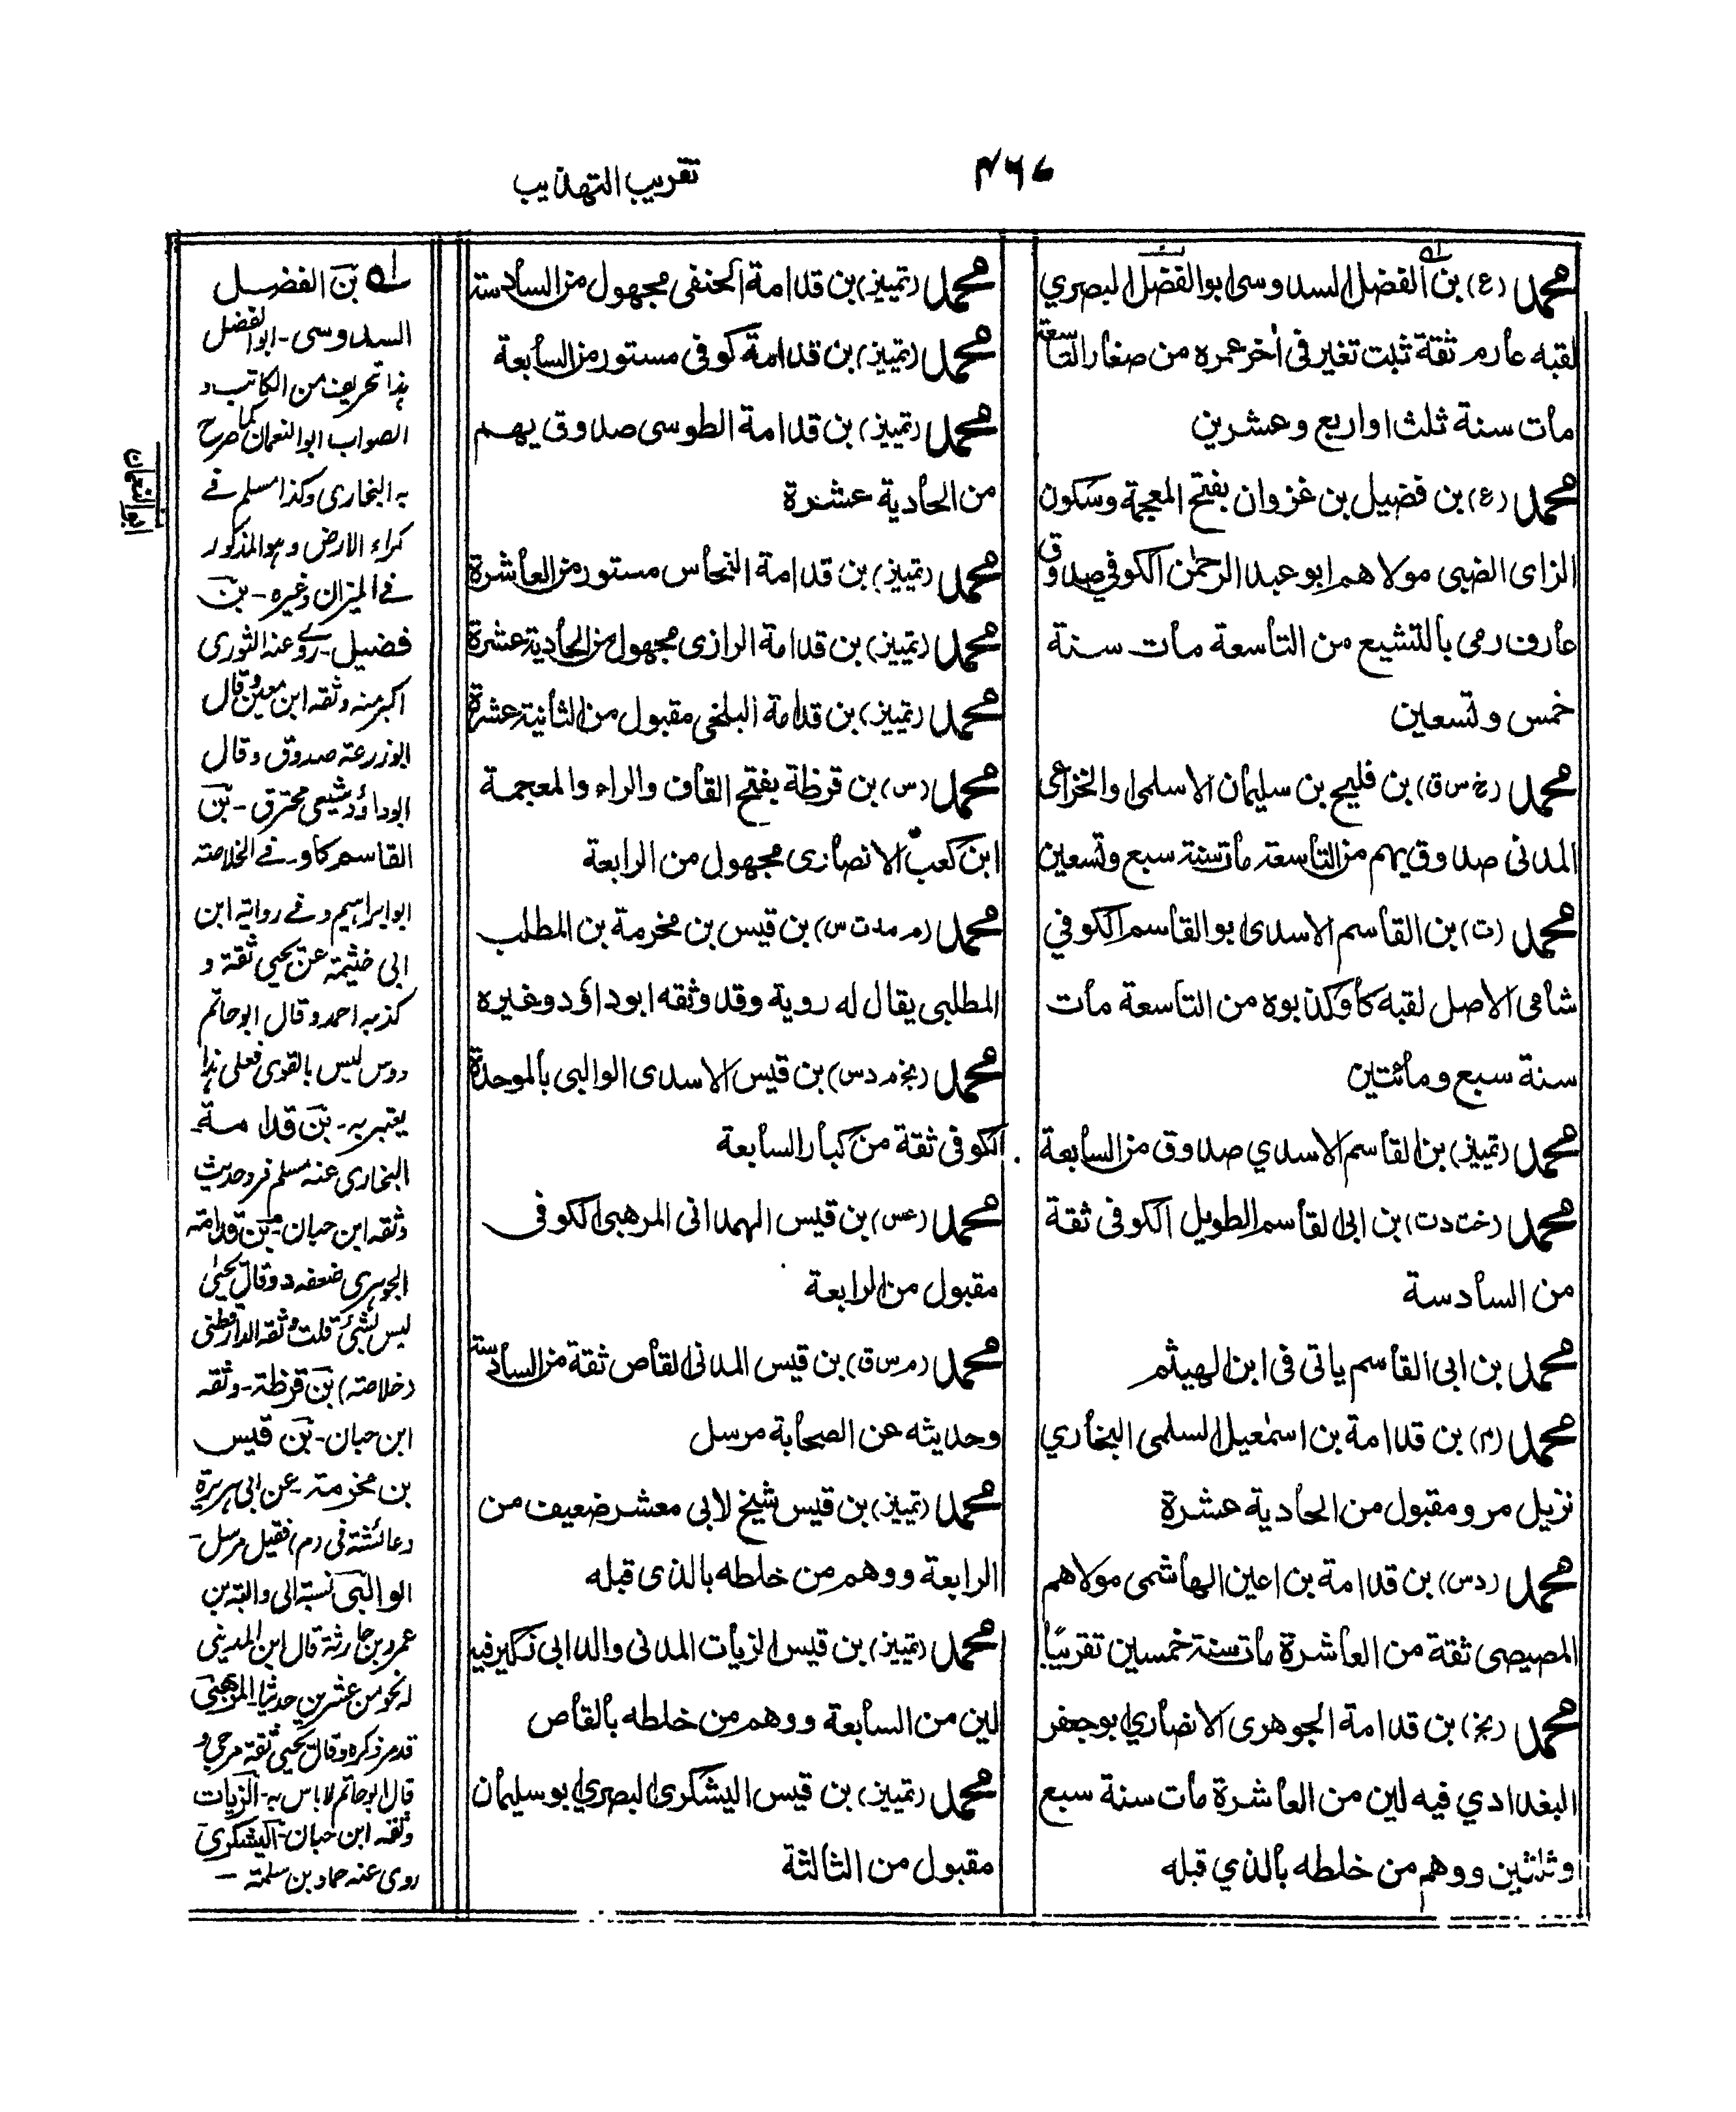 ۴۶۷
تقريب التهذيب
محمد (ع) بن الفضل السدوسى ابو الفضل البصري
لقبه عارم ثقة ثبت تغير فى اخر عمره من صغار التاسعة
مات سنة ثلث او اربع وعشرين
محمد (ع) بن فضيل بن غزوان بفتح المعجمة وسكون
الزاى الضبى مولاهم ابو عبد الرحمٰن الكوفي صدوق
عارف رمى بالتشيع من التاسعة مات سنة
خمس وتسعين
محمد (خ س ق) بن فليح بن سليمان الاسلمى او الخزاعى
المدنى صدوق يهم من التاسعة مات سنة سبع وتسعين
محمد (ت) بن القاسم الاسدى ابو القاسم الكوفي
شامى الاصل لقبه كاو كذبوه من التاسعة مات
سنة سبع ومائتين
محمد (تمييز) بن القاسم الاسدي صدوق من السابعة
محمد (خت د ت) بن ابى القاسم الطويل الكوفى ثقة
من السادسة
محمد بن ابى القاسم ياتى فى ابن الهيثم
محمد (م) بن قدامة بن اسمٰعيل السلمى البخاري
نزيل مرو مقبول من الحادية عشرة
محمد (د س) بن قدامة بن اعين الهاشمى مولاهم
المصيصى ثقة من العاشرة مات سنة خمسين تقريبًا
محمد (بخ) بن قدامة الجوهرى الانصاري ابو جعفر
البغدادي فيه لين من العاشرة مات سنة سبع
وثلثين ووهم من خلطه بالذي قبله
محمد (تمييز) بن قدامة الحنفى مجهول من السادسة
محمد (تمييز) بن قدامة كوفى مستور من السابعة
محمد (تمييز) بن قدامة الطوسى صدوق يهم
من الحادية عشرة
محمد (تمييز) بن قدامة النحاس مستور من العاشرة
محمد (تمييز) بن قدامة الرازى مجهول من الحادية عشرة
محمد (تمييز) بن قدامة البلخى مقبول من الثانية عشرة
محمد (س) بن قرظة بفتح القاف والراء والمعجمة
ابن كعب الانصارى مجهول من الرابعة
محمد (م مد ت س) بن قيس بن مخرمة بن المطلب
المطلبى يقال له روية وقد وثقه ابو داؤد وغيره
محمد (بخ م د س) بن قيس الاسدى الوالبى بالموحدة
الكوفى ثقة من كبار السابعة
محمد (عس) بن قيس الهمدانى المرهبى الكوفى
مقبول من الرابعة
محمد (م س ق) بن قيس المدنى القاص ثقة من السادسة
وحديثه عن الصحابة مرسل
محمد (تمييز) بن قيس شيخ لابى معشر ضعيف من
الرابعة ووهم من خلطه بالذى قبله
محمد (تمييز) بن قيس الزيات المدنى والد ابى زكير فيه
لين من السابعة ووهم من خلطه بالقاص
محمد (تمييز) بن قيس اليشكرى البصري ابو سليمان
مقبول من الثالثة
له بن الفضل
السدوسى - ابو الفضل
هذا تحريف من الكاتب و
الصواب ابو النعمان كما صرح
به البخارى وكذا مسلم فے
كراء الارض وهو المذكور
فے الميزان وغيره - بن
فضيل - روے عنه الثورى
اكبر منه وثقه ابن معين وقال
ابو زرعة صدوق وقال
ابوداؤد شيعى محترق - بن
القاسم كاو - فے الخلاصة
ابو ابراهيم و فے رواية ابن
ابى خثيمة عن يحيى ثقة و
كذبه احمد وقال ابو حاتم
و دس ليس بالقوى فعلى هذا
يعتبر به - بن قدامة
البخارى عنه مسلم فرد حديث
وثقه ابن حبان - بن قدامة
الجوهرى ضعفه د وقال يحيى
ليس بشئ قلت وثقه الدارقطنى
(خلاصة) بن قرظة - وثقه
ابن حبان - بن قيس
بن مخرمة - عن ابى هريرة
وعائشة فى (م) فقيل مرسل -
الوالبى نسبة الى والبة بن
عمرو بن حارثة قال ابن المدينى
له نحو من عشرين حديثا - المرهبى
قد مر ذكره وقال يحيى ثقة مرجى و
قال ابو حاتم لا باس به - الزيات
وثقه ابن حبان - اليشكرى
روى عنه حماد بن سلمة -
ابو النعمان